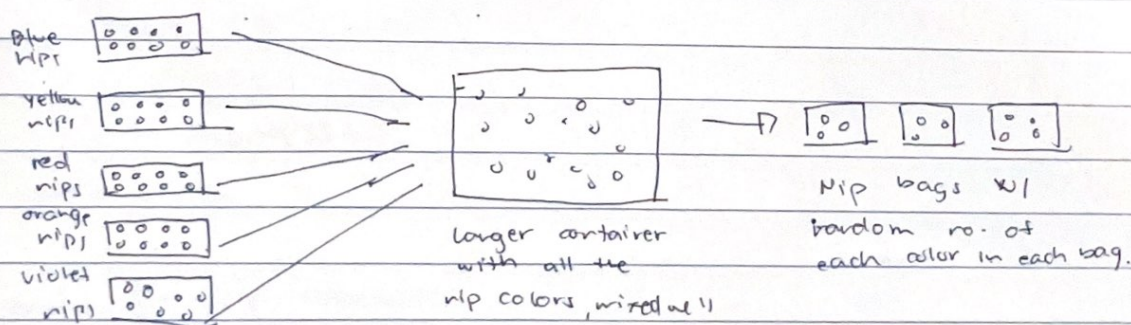 Blue
nips
yellow
nips
red
nips
orange
nips
violet
nips
Larger container
with all the
nip colors, mixed well
Nip bags w/
random no. of
each color in each bag.